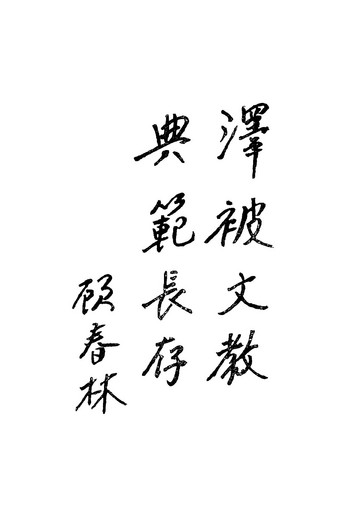 澤被文教
典範長存
顾春林